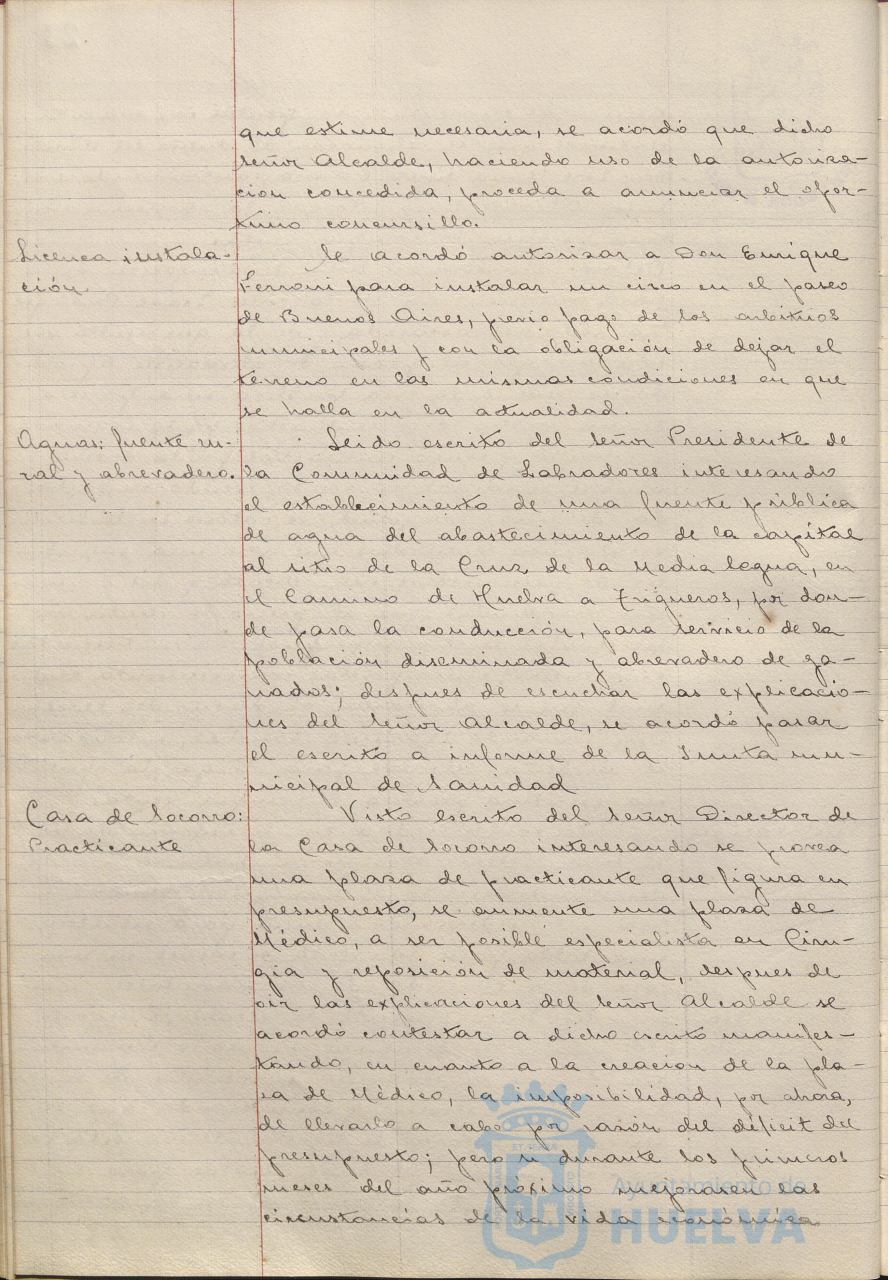 que estime necesaria, se acordó que dicho
señor Alcalde, haciendo uso de la autoriza-
cion concedida, proceda a anunciar el opor-
tuno concursillo.
Licenca instala-
ción
Se acordó autorizar a Don Enrique
Ferroni para instalar un circo en el paseo
de Buenos Aires, previo pago de los arbitrios
municipales y con la obligación de dejar el
terreno en las mismas condiciones en que
se halla en la actualidad.
Aguas: fuente ru-
ral y abrevadero.
Leido escrito del señor Presidente de
la Comunidad de Labradores interesando
el establecimiento de una fuente pública
de agua del abastecimiento de la capital
al sitio de la Cruz de la Media legua, en
el Camino de Huelva a Trigueros, por don-
de pasa la conducción, para servicio de la
población diseminada y abrevadero de ga-
nados; despues de escuchar las explicacio-
nes del señor Alcalde, se acordó pasar
el escrito a informe de la Junta mu-
nicipal de Sanidad
Casa de Socorro:
Practicante
Visto escrito del señor Director de
la Casa de Socorro interesando se provea
una plaza de practicante que figura en
presupuesto, se aumente una plaza de
Médico, a ser posible especialista en Ciru-
gia y reposición de material, despues de
oir las explicaciones del señor Alcalde se
acordó contestar a dicho escrito manifes-
tando, en cuanto a la creacion de la pla-
za de Médico, la imposibilidad, por ahora,
de llevarlo a cabo por razón del déficit del
presupuesto; pero si durante los primeros
meses del año próximo mejorasen las
circustancias de la vida económica
Ayuntamiento de
HUELVA